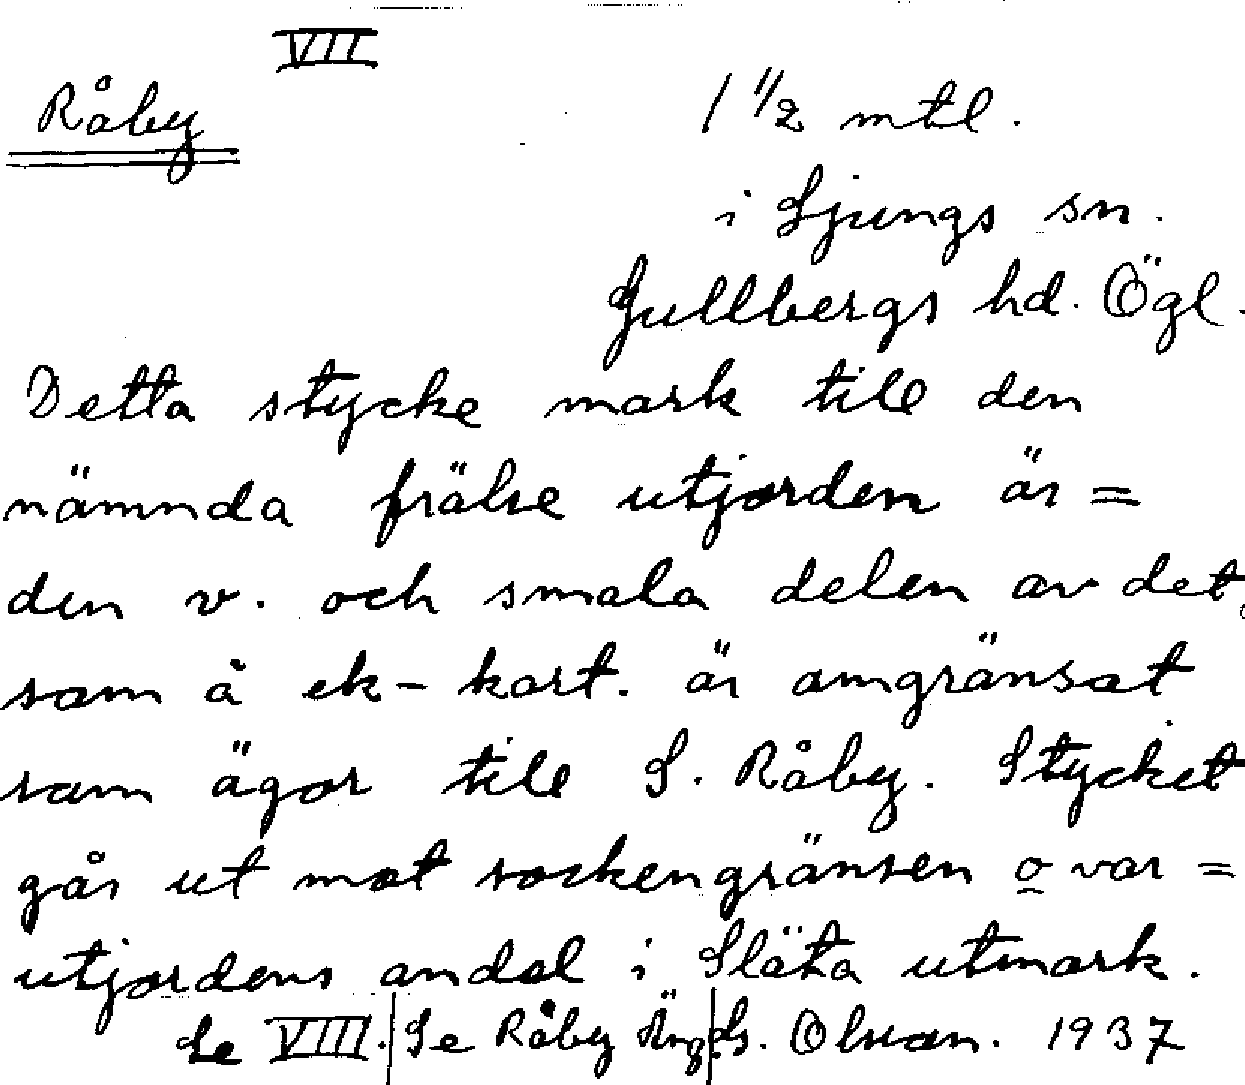 VII
Råby
1 1/2 mtl.
i Ljungs sn.
Gullbergs hd. Ögl.
Detta stycke mark till den
nämnda frälse utjorden är =
den v. och smala delen av det,
som å ek-kart. är omgränsat
som ägor till S. Råby. Stycket
går ut mot sockengränsen o var =
utjordens andel i Släta utmark.
Se VIII. Se Råby Äng G. Olsson. 1937